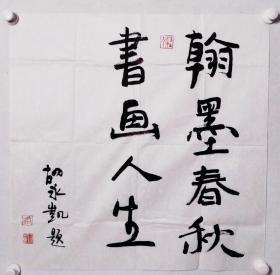 翰墨春秋
書画人生
胡永凯題